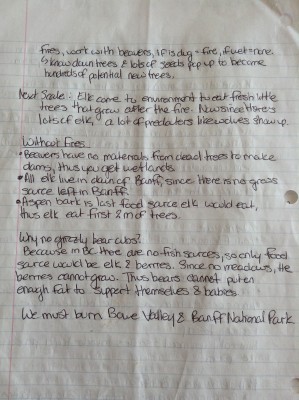 fires, work with beavers, if is dug = fire, if wet = none.
↳ know down trees & lots of seeds pop up to become
hundreds of potential new trees.
Next Scale - Elk come to environment to eat fresh little
trees that grew after the fire. Now since there's
lots of elk, a lot of predators like wolves show up.
Without Fires
• Beavers have no materials from dead trees to make
dams, thus you get wetlands
• All elk live in town of Banff, since there is no grass
source left in Banff.
• Aspen bark is last food source elk would eat,
thus elk eat first 2 m of trees.
Why no grizzly bear cubs?
Because in BC there are no fish sources, so only food
source would be elk & berries. Since no meadows, the
berries cannot grow. Thus bears cannot put on
enough fat to support themselves & babies.
We must burn Bowe Valley & Banff National Park.